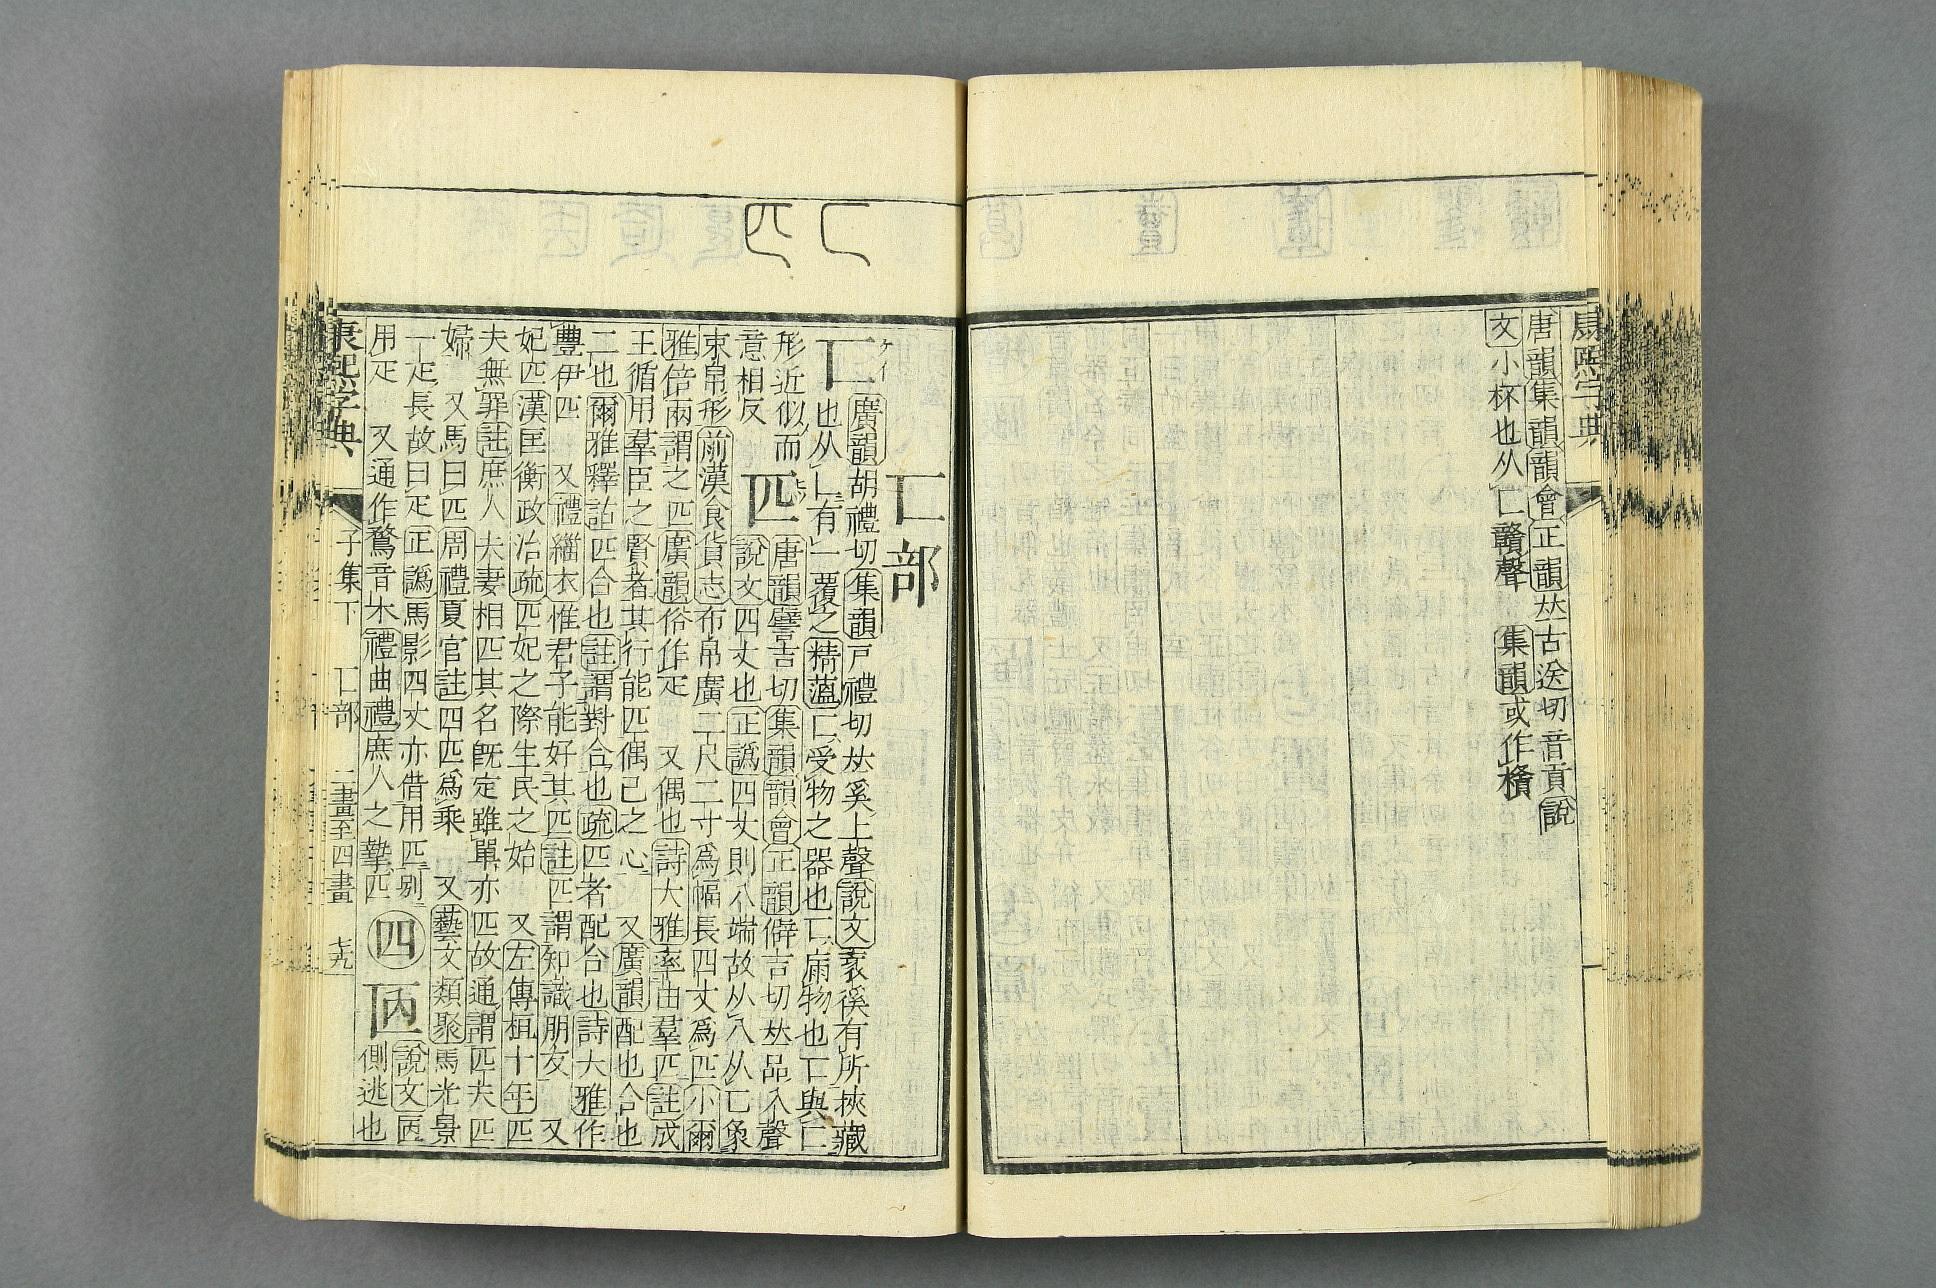 康熙字典
唐韻集韻韻會正韻𠀤古送切音貢說
文小杯也从匚贛聲 集韻或作㯯
匸 匹
匸部
ケイ
匸廣韻胡禮切集韻戸禮切𠀤奚上聲說文衺徯有所挾藏
也从乚有一覆之精薀匚受物之器也匸㢋物也匸與匚
形近似而意相反
匹唐韻譬吉切集韻韻會正韻僻吉切𠀤品入聲
說文四丈也正譌四丈則八端故从八从匸象
束帛形前漢食貨志布帛廣二尺二寸爲幅長四丈爲匹小爾
雅倍兩謂之匹廣韻俗作疋 又偶也詩大雅率由羣匹註成
王循用羣臣之賢者其行能匹偶己之心 又廣韻配也合也
二也爾雅釋詁匹合也註謂對合也疏匹者配合也詩大雅作
豐伊匹 又禮緇衣惟君子能好其匹註匹謂知識朋友 又
妃匹漢匡衡政治疏匹妃之際生民之始 又左傳桓十年匹
夫無罪註庶人夫妻相匹其名旣定雖單亦匹故通謂匹夫匹
婦 又馬曰匹周禮夏官註四匹爲乘 又藝文類聚馬光景
一疋長故曰疋正譌馬影四丈亦借用匹別
用疋 又通作鶩音木禮曲禮庶人之摯匹
四
㔷說文匧側逃也
康熙字典 子集下 匸部 二畫至四畫 七九